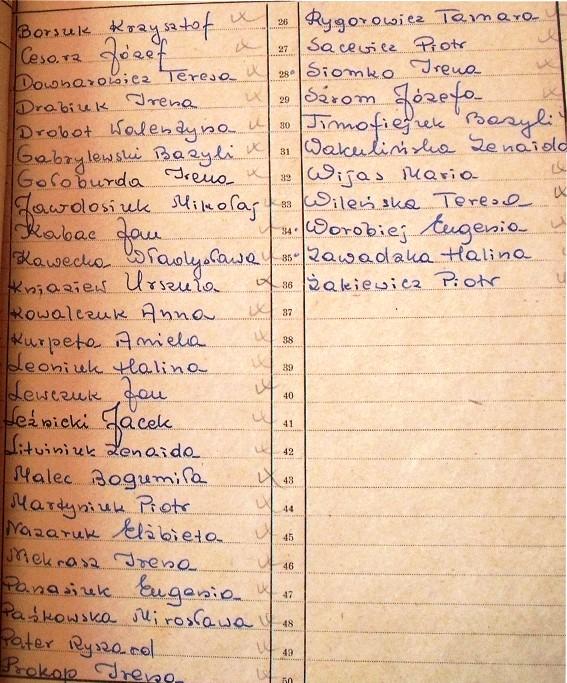 Borsuk Krzysztof
Cesarz Józef
Downarowicz Teresa
Drabiuk Irena
Drobot Walentyna
Gabrylewski Bazyli
Gołoburda Irena
Jawdosiuk Mikołaj
Kabac Jan
Kawecka Władysława
Kniaziew Urszula
Kowalczuk Anna
Kurpeta Aniela
Leoniuk Halina
Lewczuk Jan
Leźnicki Jacek
Litwiniuk Zenaida
Malec Bogumiła
Martyniuk Piotr
Nazaruk Elżbieta
Niekrasz Irena
Panasiuk Eugenia
Paśkowska Mirosława
Pater Ryszard
Prokop Irena
26 Rygorowicz Tamara
27 Sacewicz Piotr
28 Siomko Irena
29 Szrom Józefa
30 Timofiejuk Bazyli
31 Wakulińska Zenaida
32 Wijas Maria
33 Wileńska Teresa
34 Worobiej Eugenia
35 Zawadzka Halina
36 Żakiewicz Piotr
37
38
39
40
41
42
43
44
45
46
47
48
49
50